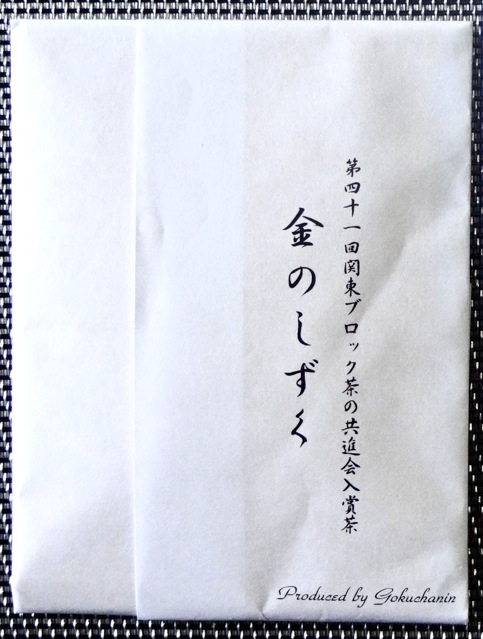 第四十一回関東ブロック茶の共進会入賞茶
金のしずく
Produced by Gokuchanin